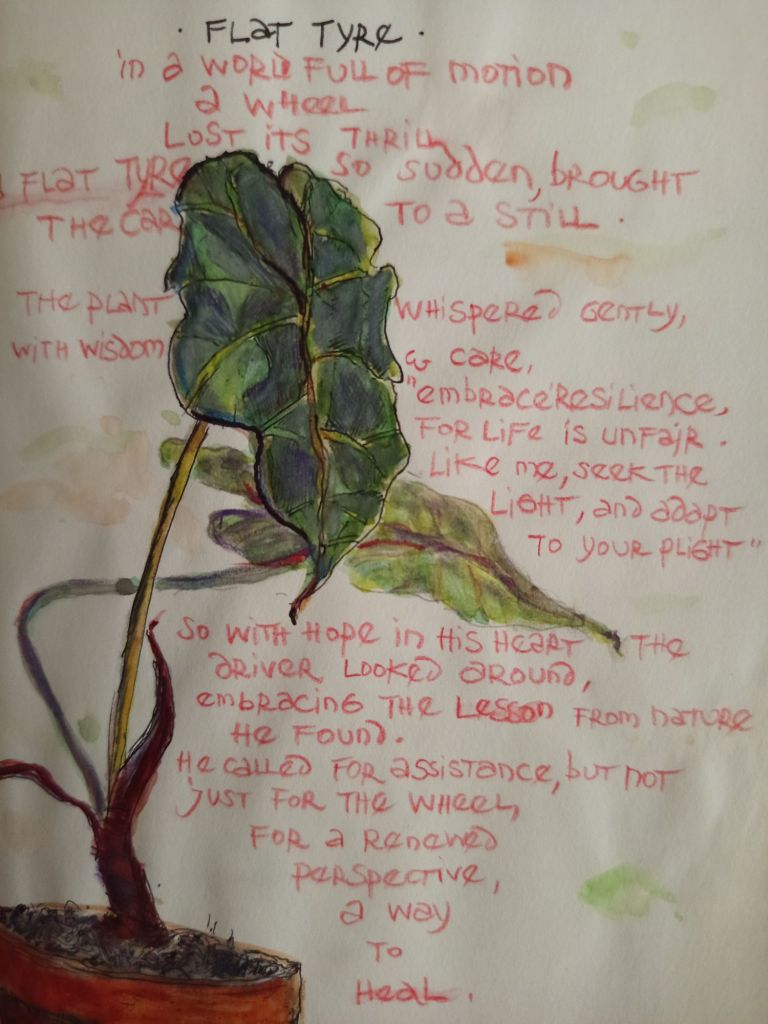 · FLAT TYRE ·
in a WORLD FULL OF motion
a WHEEL
LOST iTS THRILL
a FLAT TYRE SO SUDDEN, BROUGHT
THE CAR TO a STILL.
THE PLANT WHISPERED GENTLY,
WITH WISDOM & CARE,
"embrace RESILIENCE,
FOR LIFE is UNFAIR.
LIKE ME, SEEK THE
LIGHT, and adapt
TO YOUR PLIGHT"
SO WITH HOPE in HIS HEART THE
DRIVER LOOKED AROUND,
embracing THE LESSON FROM NATURE
HE FOUND.
HE CALLED FOR assistance, but not
JUST FOR THE WHEEL,
FOR a RENEWED
PERSPECTIVE,
a way
TO
HEAL.